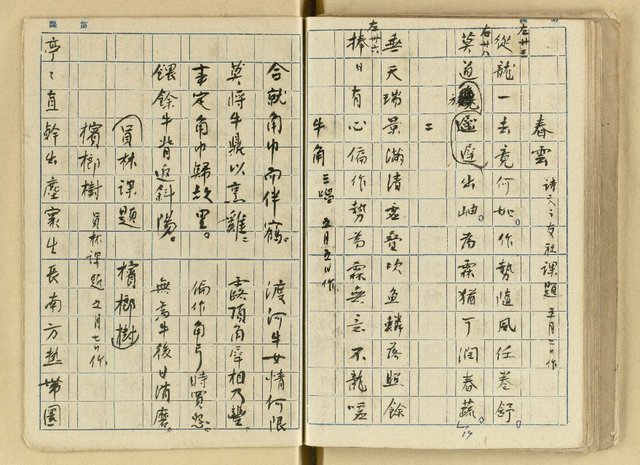 春雲 詩人之友社課題 五月二日作
左廿三
從龍一去竟何如。作勢隨風任卷舒。
右廿八
莫道遲出岫。為霖猶可潤春蔬。
二
垂天瑞景滿清虛疊吹魚鱗落照餘
左廿六
捧日有心偏作勢為霖無意不龍噓
牛角 三唱 五月五日作
合就角巾而伴鶴。 渡河牛女情何限
莫將牛鼎以烹雞。 露頂角巾相乃豐
末定角巾歸故里。 偏作角弓時買怨
鍡餘牛背返斜陽。 無為牛後日消磨。
員林課題 檳榔樹
檳榔樹 員林課題 五月七日作
亭々直幹出塵寰生長南方熱帶圈
第 課
第